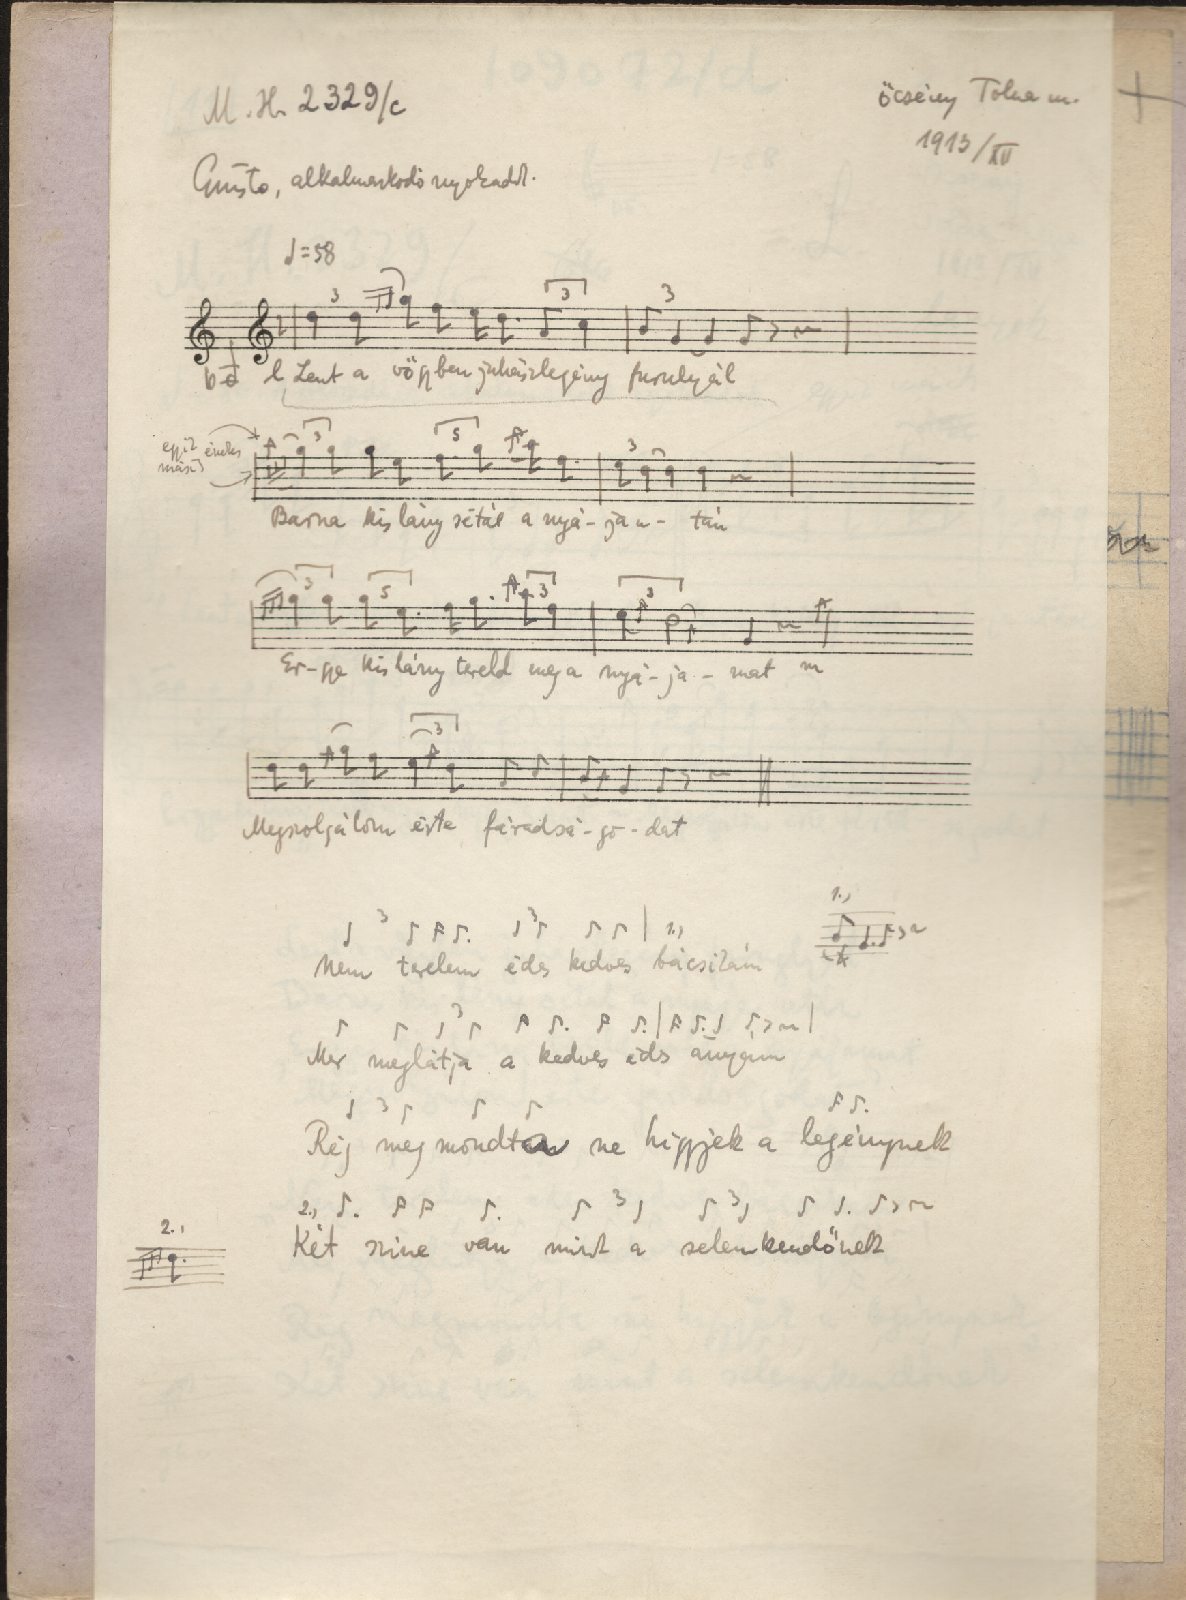 M. H. 2329/c
Öcsény Tolna m.
1913/XII
Giusto, alkalmazkodó nyolcaddal.
♩=58
3 3 3
Lent a vögyben juhászlegény furulyál
egyik énekes
másik
3 5 3
Barna kis lány sétál a nyá-ja u- tán
3 5 3 3
Er-gye kis lány tereld meg a nyá-ja-mat m
3
Megszolgálom érte fáradsá-go-dat
3 3 1.,
1.,
Nem terelem édes kedves bácsikám
3
Mer meglátja a kedves édes anyám
3
Rég megmondta ne higyjek a legénynek
2., 3 3
2.,
Két szine van mint a selemkendőnek